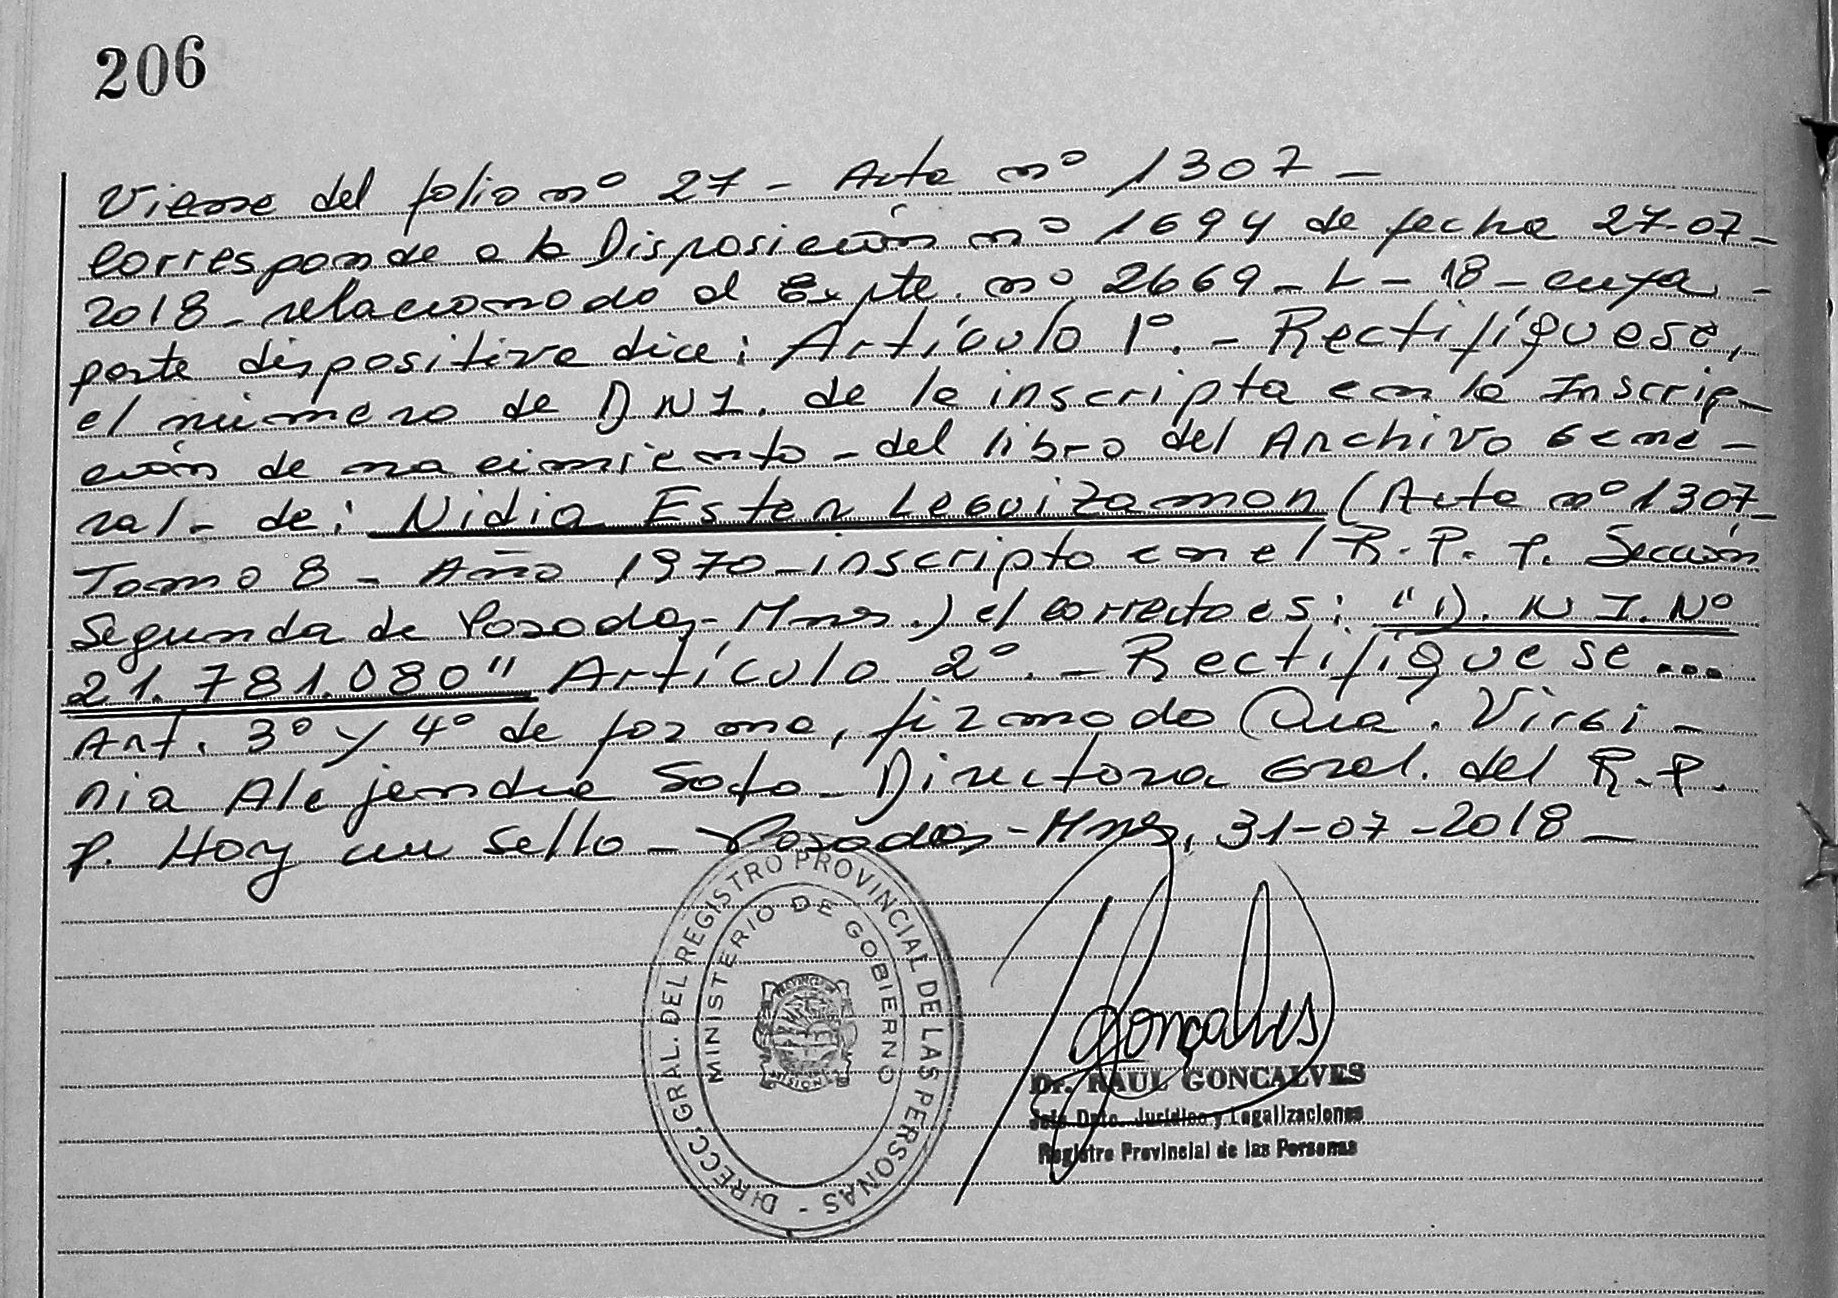 206
Viene del folio nº 27 - Acta nº 1307 -
Corresponde a la Disposición nº 1694 de fecha 27-07-
2018 - relacionado al Expte. nº 2669 - L - 18 - cuya -
parte dispositiva dice: Artículo 1º. - Rectifíquese,
el número de DNI. de la inscripta en la Inscrip-
ción de nacimiento - del libro del Archivo Gene-
ral - de: Nidia Ester Leguizamon (Acta nº 1307
Tomo 8 - Año 1970 - inscripto en el R. P. P. Sección
Segunda de Posadas - Mnes.) el correcto es: "D. N I. Nº
21.781.080" Artículo 2º. - Rectifíquese...
Art. 3º y 4º de forma, firmado Virgi-
nia Alejandra Soto - Directora Gral. del R. P.
P. Hay un sello - Posadas - Mnes, 31-07-2018 -
DIRECC. GRAL. DEL REGISTRO PROVINCIAL DE LAS PERSONAS -
MINISTERIO DE GOBIERNO
PROVINCIA
MISIONES
Gonçalves
Dr. RAUL GONCALVES
Jefe Dpto. Jurídico y Legalizaciones
Registro Provincial de las Personas